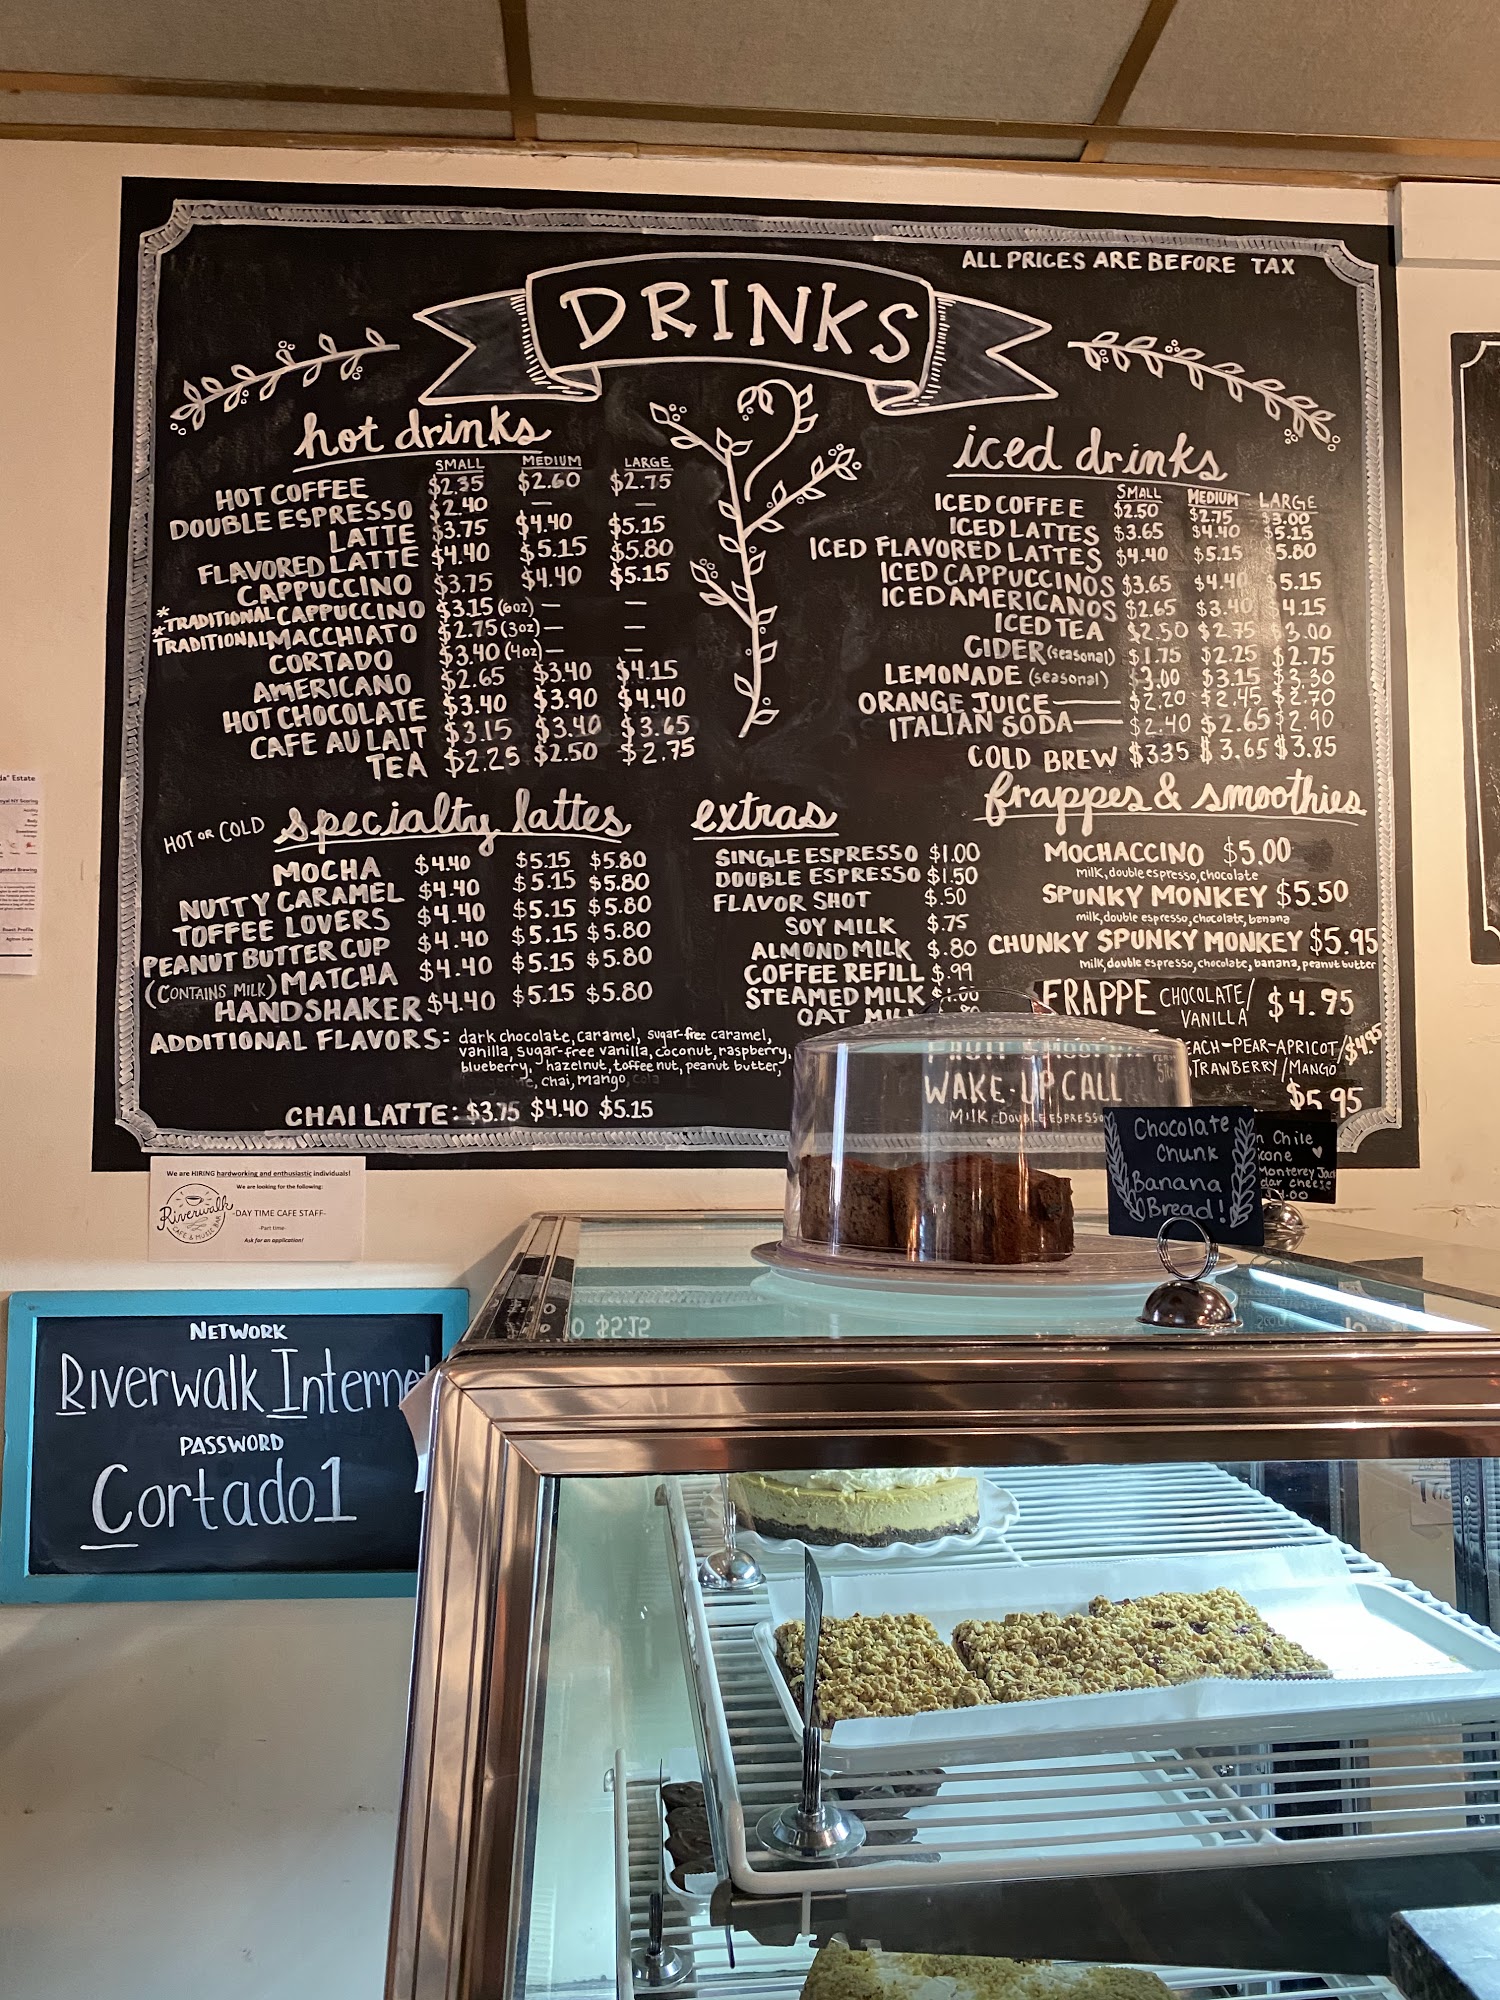 ALL PRICES ARE BEFORE TAX
DRINKS
hot drinks
SMALL MEDIUM LARGE
HOT COFFEE $2.35 $2.60 $2.75
DOUBLE ESPRESSO $2.40 — —
LATTE $3.75 $4.40 $5.15
FLAVORED LATTE $4.40 $5.15 $5.80
CAPPUCCINO $3.75 $4.40 $5.15
*TRADITIONAL CAPPUCCINO $3.15 (6oz) — —
*TRADITIONAL MACCHIATO $2.75 (3oz) — —
CORTADO $3.40 (4oz) — —
AMERICANO $2.65 $3.40 $4.15
HOT CHOCOLATE $3.40 $3.90 $4.40
CAFE AU LAIT $3.15 $3.40 $3.65
TEA $2.25 $2.50 $2.75
iced drinks
SMALL MEDIUM LARGE
ICED COFFEE $2.50 $2.75 $3.00
ICED LATTES $3.65 $4.40 $5.15
ICED FLAVORED LATTES $4.40 $5.15 $5.80
ICED CAPPUCCINOS $3.65 $4.40 $5.15
ICED AMERICANOS $2.65 $3.40 $4.15
ICED TEA $2.50 $2.75 $3.00
CIDER (seasonal) $1.75 $2.25 $2.75
LEMONADE (seasonal) $3.00 $3.15 $3.30
ORANGE JUICE — $2.20 $2.45 $2.70
ITALIAN SODA — $2.40 $2.65 $2.90
COLD BREW $335 $3.65 $3.85
HOT OR COLD specialty lattes
MOCHA $4.40 $5.15 $5.80
NUTTY CARAMEL $4.40 $5.15 $5.80
TOFFEE LOVERS $4.40 $5.15 $5.80
PEANUT BUTTER CUP $4.40 $5.15 $5.80
(CONTAINS MILK) MATCHA $4.40 $5.15 $5.80
HANDSHAKER $4.40 $5.15 $5.80
ADDITIONAL FLAVORS: dark chocolate, caramel, sugar-free caramel,
vanilla, sugar-free vanilla, coconut, raspberry,
blueberry, hazelnut, toffee nut, peanut butter,
chai, mango
CHAI LATTE: $3.75 $4.40 $5.15
extras
SINGLE ESPRESSO $1.00
DOUBLE ESPRESSO $1.50
FLAVOR SHOT $.50
SOY MILK $.75
ALMOND MILK $.80
COFFEE REFILL $.99
STEAMED MILK $1.00
OAT MILK .80
frappes & smoothies
MOCHACCINO $5.00
milk, double espresso, chocolate
SPUNKY MONKEY $5.50
milk, double espresso, chocolate, banana
CHUNKY SPUNKY MONKEY $5.95
milk, double espresso, chocolate, banana, peanut butter
FRAPPE CHOCOLATE/ $4.95
VANILLA
EACH-PEAR-APRICOT/ $4.95
TRAWBERRY/MANGO
WAKE-UP CALL $5.95
MILK, DOUBLE ESPRESSO
Chocolate
Chunk
Banana
Bread!
n Chile
cone
Monterey Jack
dar cheese
We are HIRING hardworking and enthusiastic individuals!
We are looking for the following:
Riverwalk
CAFE & MUSIC BAR
-DAY TIME CAFE STAFF-
-Part time-
Ask for an application!
NETWORK
Riverwalk Internet
PASSWORD
Cortado1
da" Estate